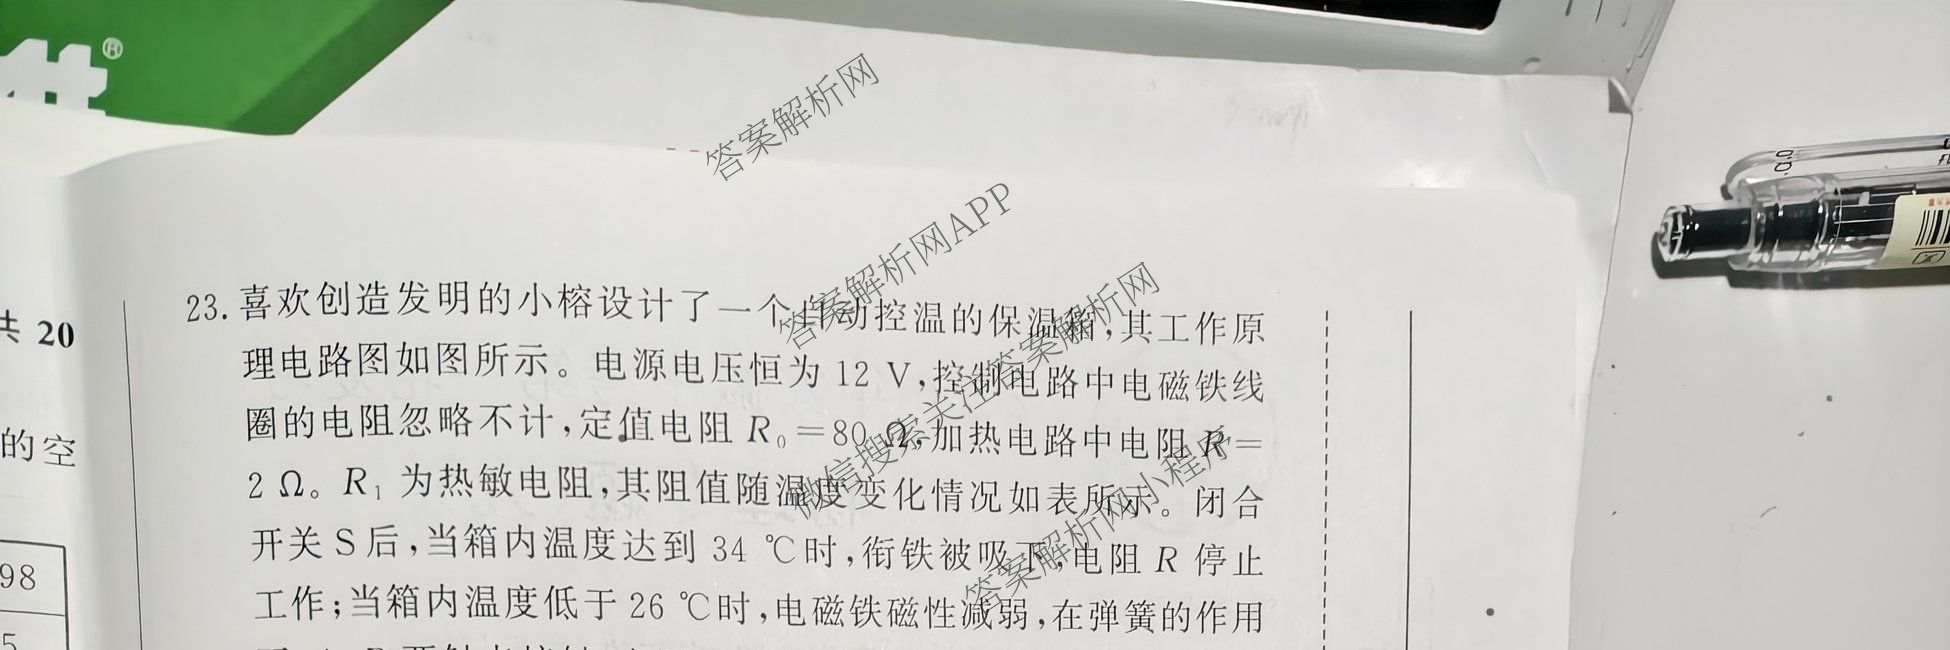 ®
共 20
的空
98
5
23.喜欢创造发明的小榕设计了一个自动控温的保温箱,其工作原
理电路图如图所示。电源电压恒为 12 V,控制电路中电磁铁线
圈的电阻忽略不计,定值电阻 R₀=80 Ω,加热电路中电阻 R=
2 Ω。R₁ 为热敏电阻,其阻值随温度变化情况如表所示。闭合
开关 S 后,当箱内温度达到 34 ℃时,衔铁被吸下,电阻 R 停止
工作;当箱内温度低于 26 ℃时,电磁铁磁性减弱,在弹簧的作用
答案解析网
答案解析网APP
微信搜索关注答案解析网
答案解析网小程序
0.0